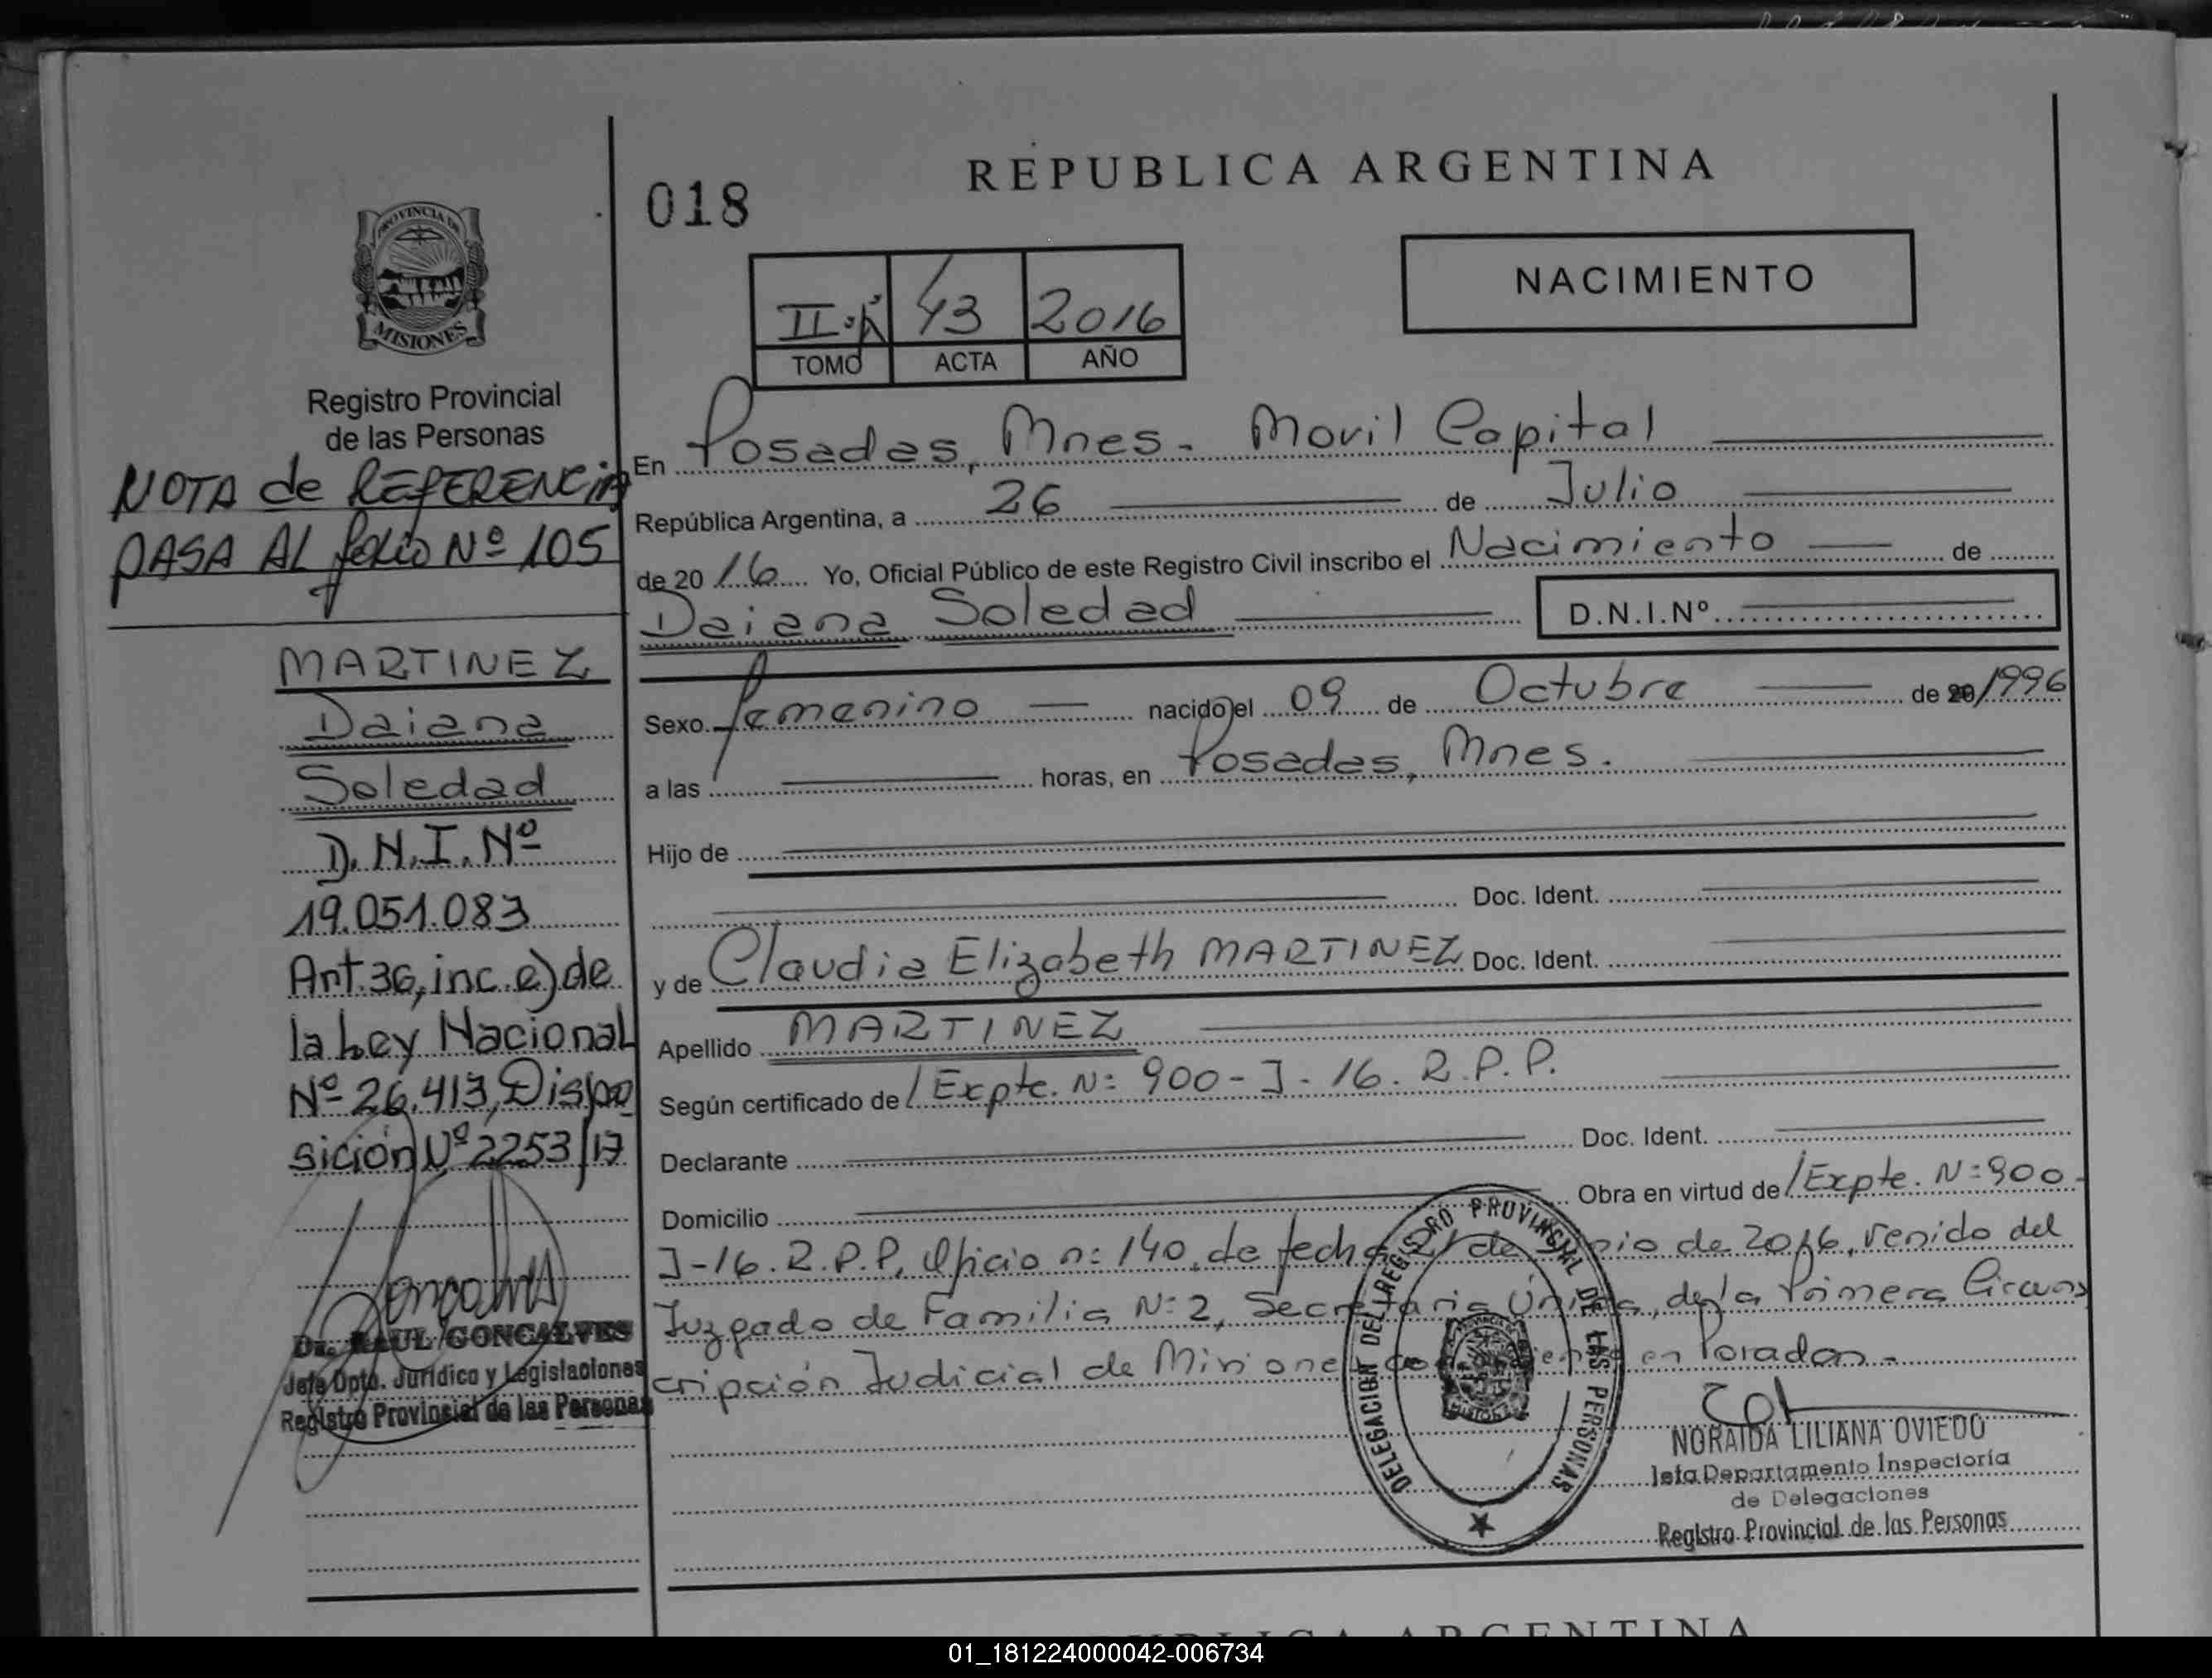 REPUBLICA ARGENTINA
018
PROVINCIA DE
MISIONES
NACIMIENTO
43 2016
TOMO ACTA AÑO
Registro Provincial
de las Personas
NOTA de REFERENCIA
PASA AL folio Nº 105
MARTINEZ
Daiana
Soledad
D.N.I. Nº
19.051.083
Art. 36, inc. e) de
la Ley Nacional
Nº 26.413, Dispo
sición Nº 2253/17
Dr. RAUL GONCALVES
Jefe Dpto. Jurídico y Legislaciones
Registro Provincial de las Personas
En Posadas, Mnes. Movil Capital
República Argentina, a 26 de Julio
de 20 16 Yo, Oficial Público de este Registro Civil inscribo el Nacimiento de
Daiana Soledad D.N.I.Nº
Sexo femenino nacido el 09 de Octubre de 20/1996
a las horas, en Posadas, Mnes.
Hijo de
Doc. Ident.
y de Claudia Elizabeth MARTINEZ Doc. Ident.
Apellido MARTINEZ
Según certificado de / Expte. N: 900-J-16. R.P.P.
Declarante Doc. Ident.
Domicilio Obra en virtud de / Expte. N: 900-
J-16. R.P.P, Oficio n: 140, de fecha 21 de de 2016, venido del
Juzgado de Familia N: 2, Secretaria Única, de la Primera Circuns
cripción Judicial de Misiones en Posadas.-
DELEGACION DEL REGISTRO PROVINCIAL DE LAS PERSONAS
MISIONES
NORAIDA LILIANA OVIEDO
Jefa Departamento Inspectoría
de Delegaciones
Registro Provincial de las Personas
ARGENTINA
01_181224000042-006734